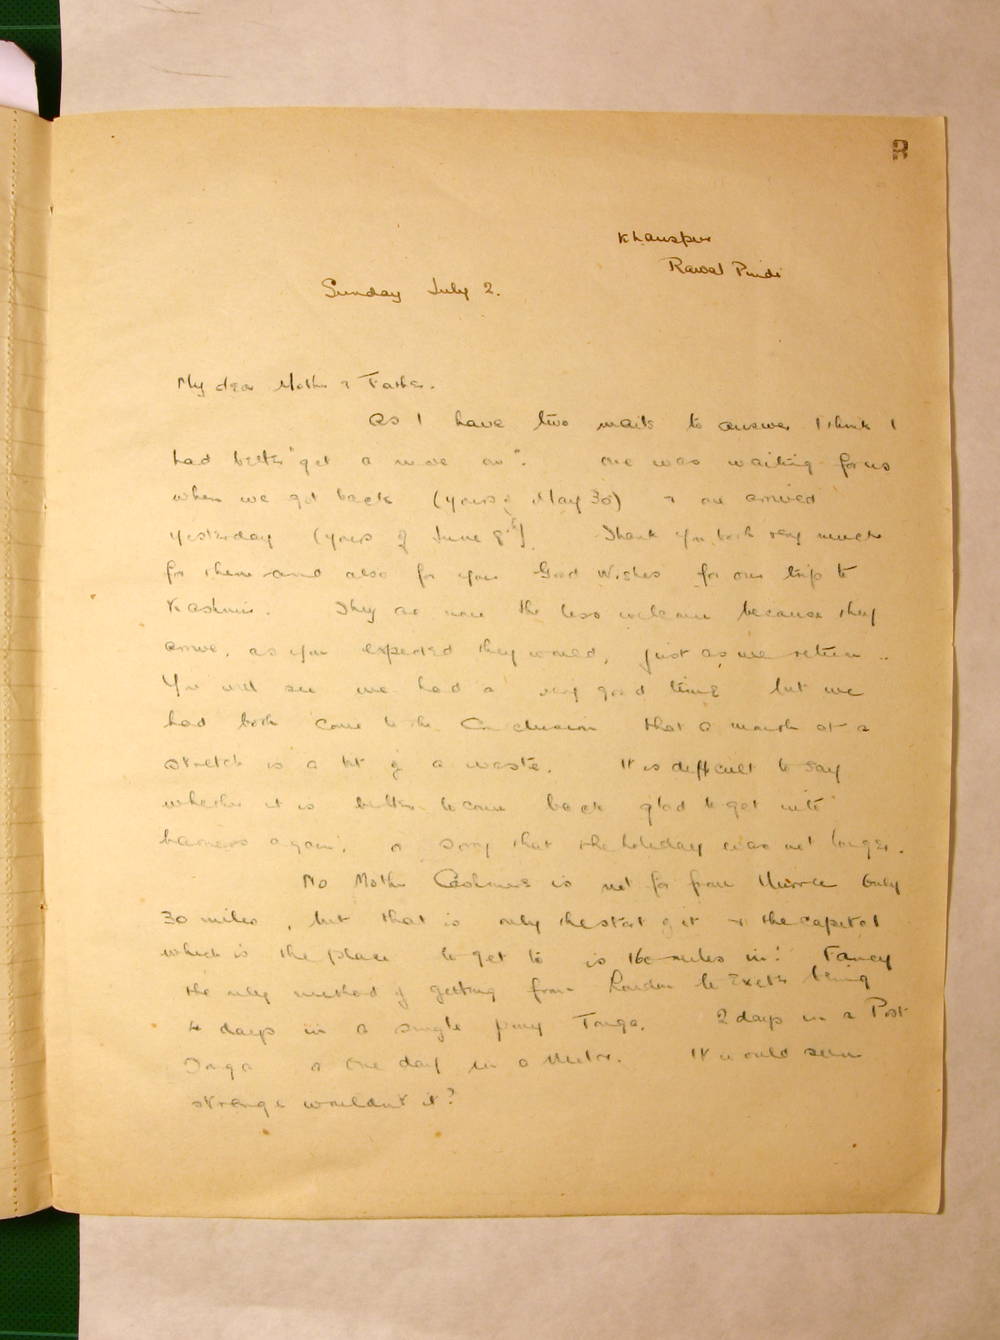 3
Khanspur
Rawal Pindi
Sunday July 2.
My dear Mother & Father.
As I have two mails to answer I think I
had better "get a move on". One was waiting for us
when we got back (yours of May 30) & one arrived
yesterday (yours of June 8th). Thank you both very much
for them and also for your Good Wishes for our trip to
Kashmir. They are none the less welcome because they
arrive, as you expected they would, just as we return.
You will see we had a very good time but we
had both come to the Conclusion that a month at a
stretch is a bit of a waste. It is difficult to say
whether it is better to come back glad to get into
harness again, or sorry that the holiday was not longer.
No Mother Cashmere is not far from Murree Only
30 miles, but that is only the start of it & the capital
which is the place to get to is 160 miles in! Fancy
the only method of getting from London to Exeter being
4 days in a single pony Tonga. 2 days in a Post
Tonga or One day in a Motor. It would seem
strange wouldn't it?